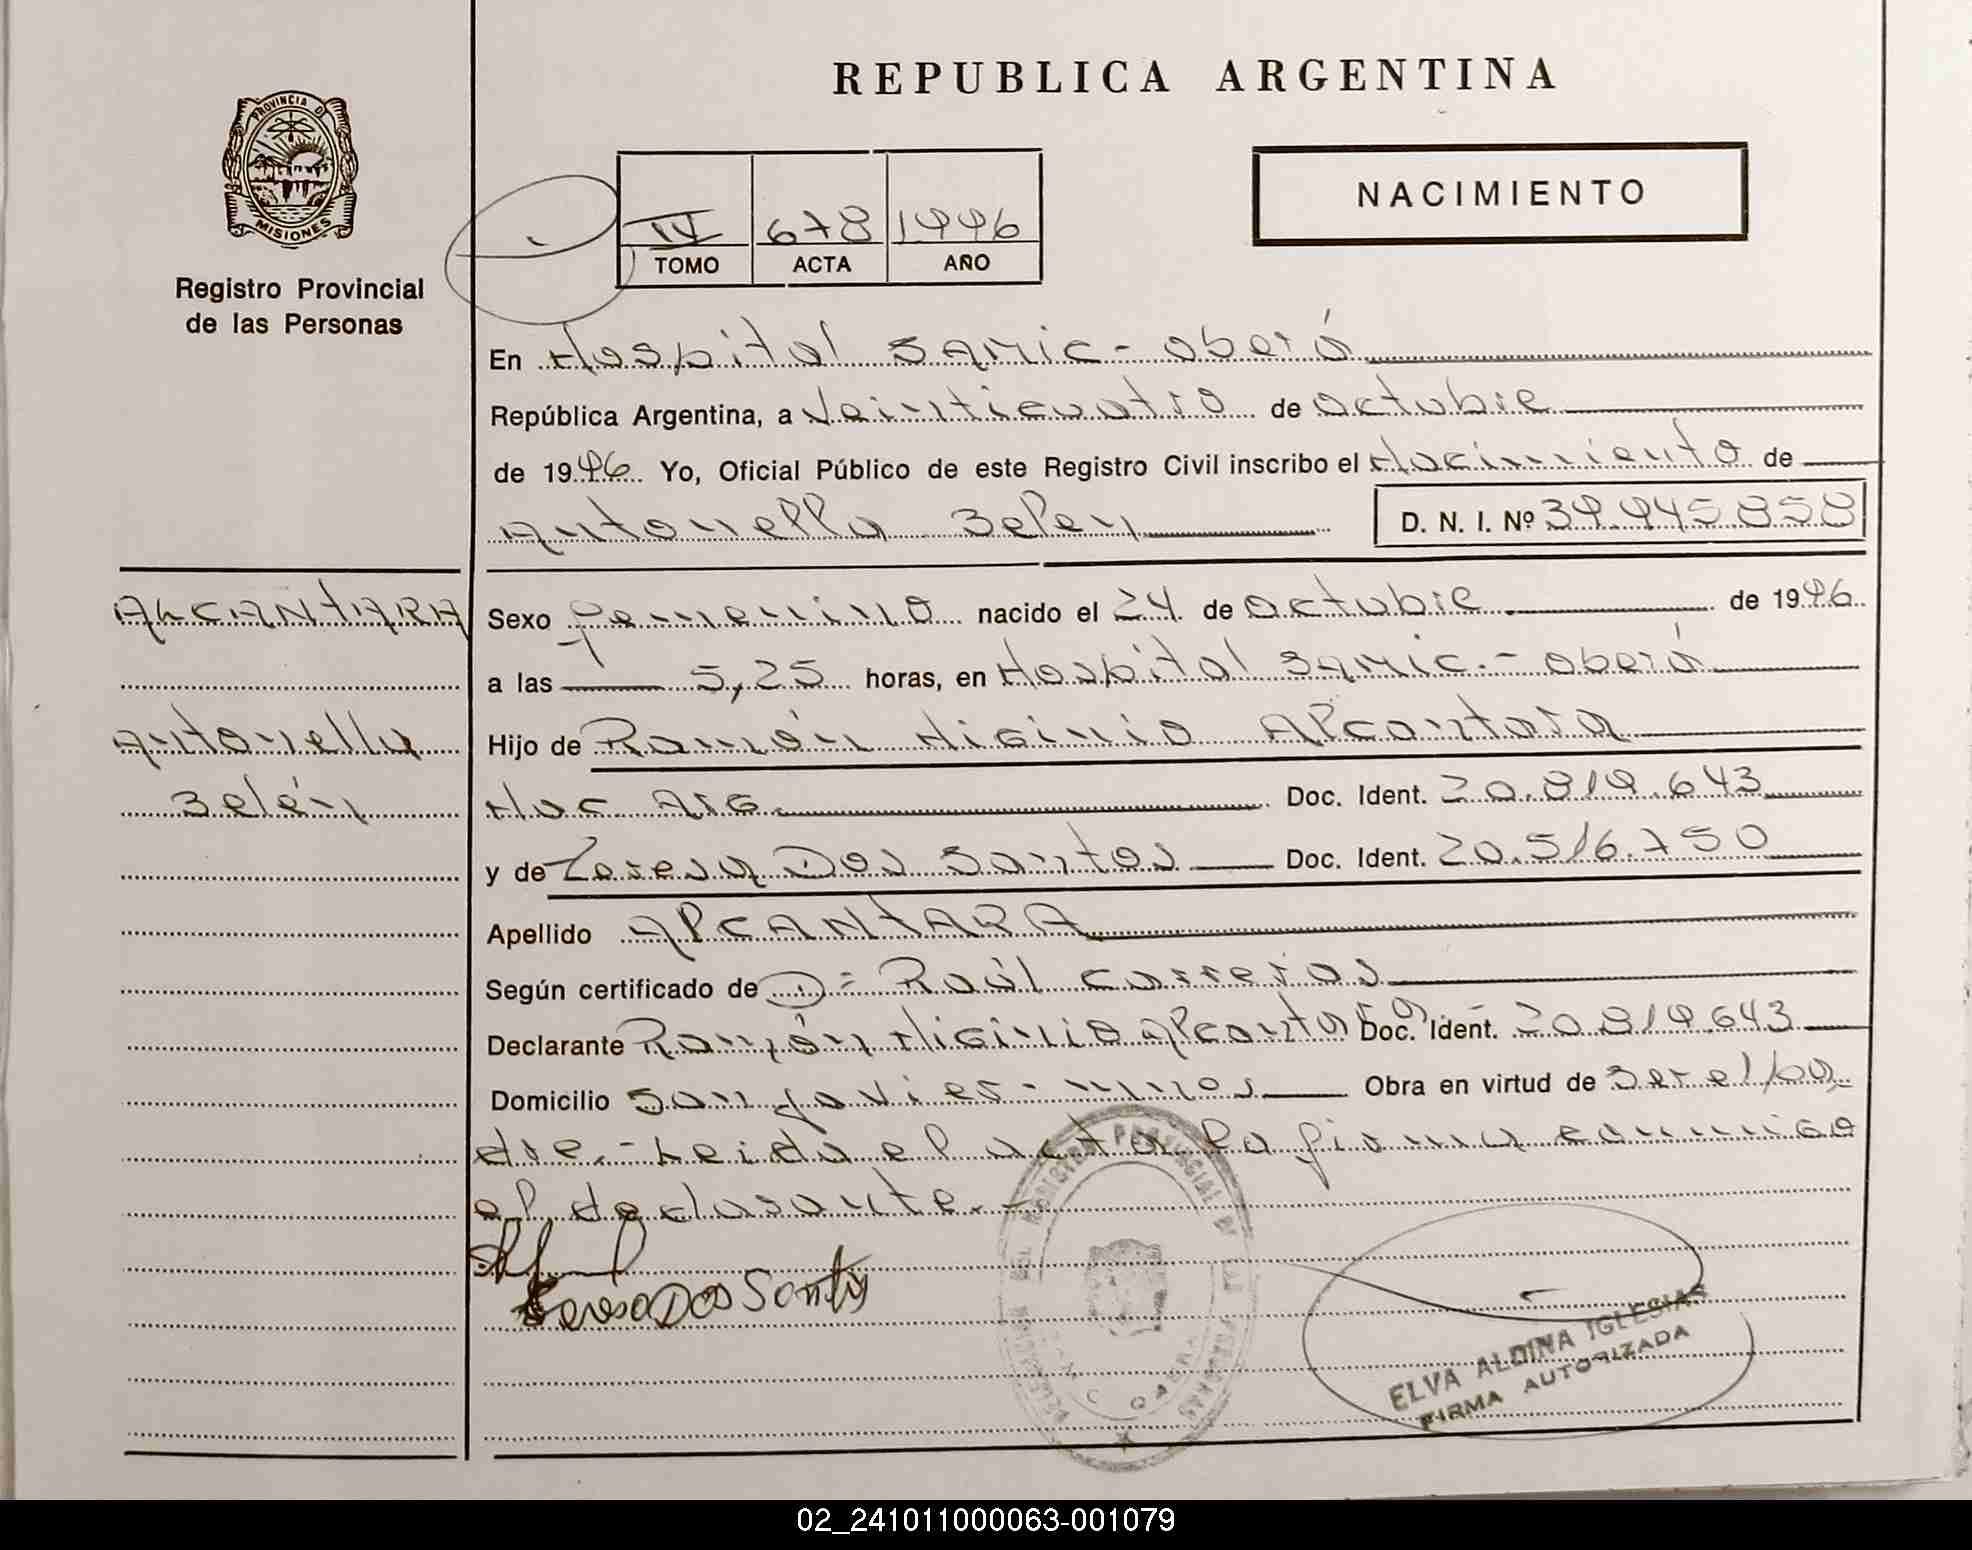 REPUBLICA ARGENTINA
PROVINCIA DE
MISIONES
Registro Provincial
de las Personas
NACIMIENTO
IV 678 1996
TOMO ACTA AÑO
En Hospital SAMIC - Oberá
República Argentina, a Veinticuatro de octubre
de 1996 Yo, Oficial Público de este Registro Civil inscribo el Nacimiento de
Antonella Belen D. N. I. Nº 39.945.858
ALCANTARA
Antonella
Belén
Sexo femenino nacido el 24 de octubre de 1996
a las 5,25 horas, en Hospital SAMIC.- Oberá
Hijo de Ramón Higinio Alcantara
Nac Arg. Doc. Ident. 20.819.643
y de Teresa Dos Santos Doc. Ident. 20.516.750
Apellido ALCANTARA
Según certificado de D= Raúl Carreras
Declarante Ramón Higinio Alcantara - Doc. Ident. 20.819.643
Domicilio San Javier - Mnes Obra en virtud de Ser el pa
dre.- Leida el acta la firma conmigo
el declarante.-
Teresa Dos Santos
ELVA ALDINA IGLESIAS
FIRMA AUTORIZADA
02_241011000063-001079